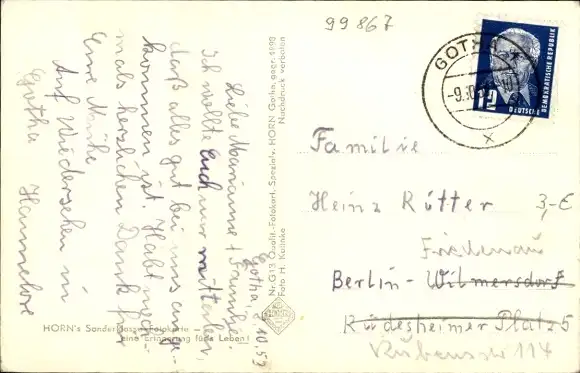 99867
GOTHA
-9.10.
12
DEUTSCHE
DEMOKRATISCHE REPUBLIK
Gotha, 10.53
Liebe Marianne + Familie!
Ich wollte Euch nur mitteilen,
daß alles gut bei uns ange-
kommen ist. Habt noch-
mals herzlichen Dank für
Eure Mühe
Auf Wiedersehen in
Gotha Hannelore
HORN's Sonderklasse-Fotokarte –
eine Erinnerung fürs Leben!
Nr. G 13 Qualit.-Fotokart. Spezialv. HORN Gotha, gegr. 1898
Foto H. Nachdruck verboten
Familie
Heinz Rütter
3,-€
Friedenau
Berlin-Wilmersdorf
Rüdesheimer Platz 5
Rubensstr 114